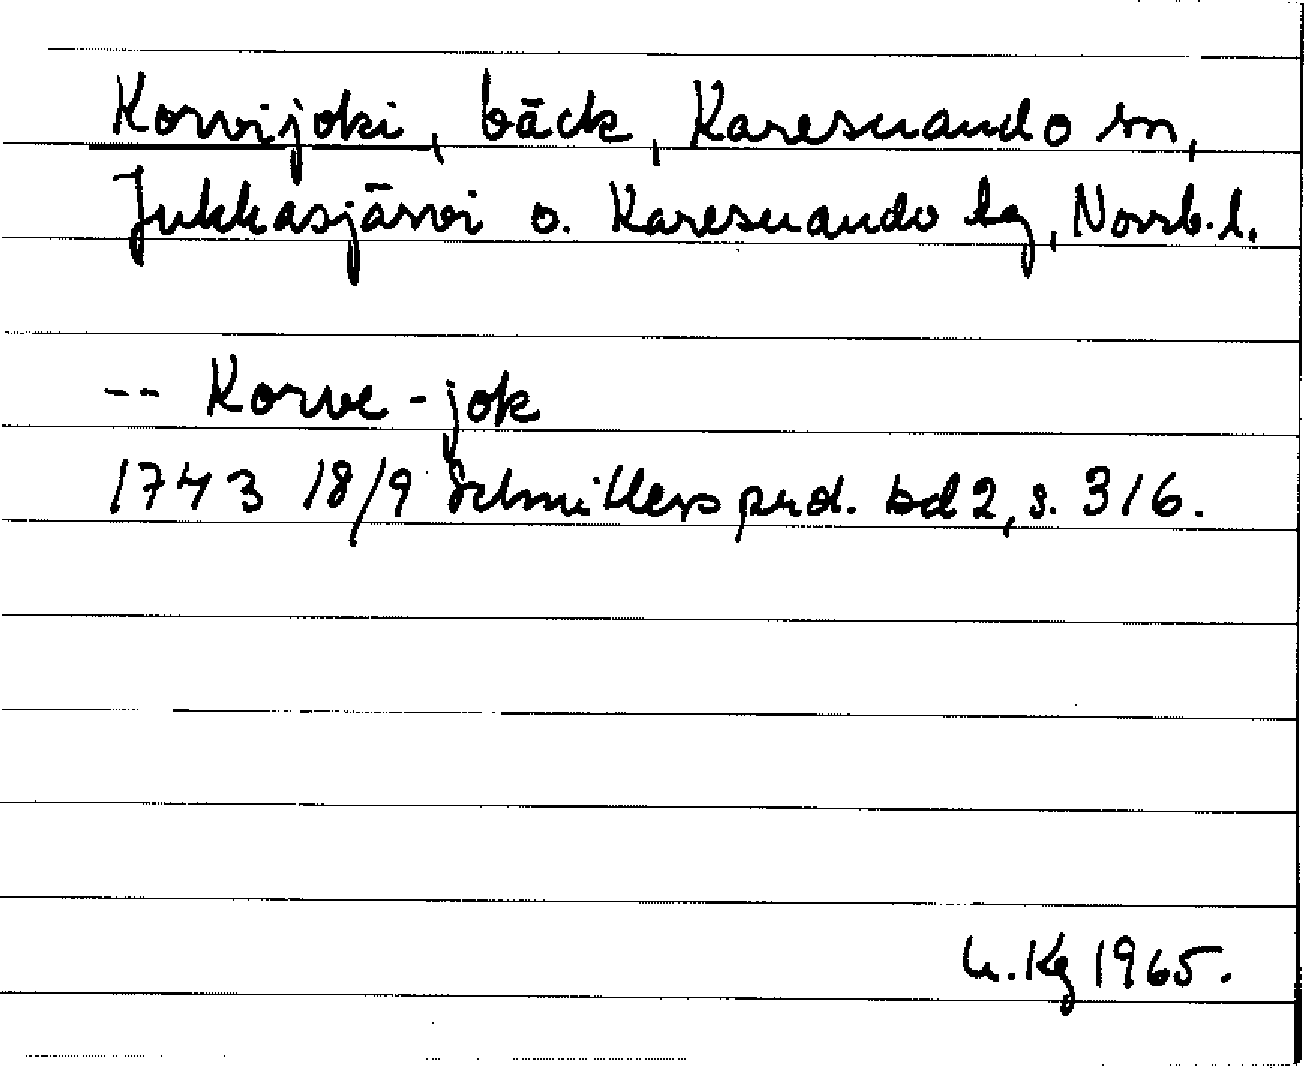 Korvijoki, bäck, Karesuando sn,
Jukkasjärvi o. Karesuando lg, Norrb. l.
-- Korve-jok
1743 18/9 Schnitlers prd. bd 2, s. 316.
U. Kg 1965.